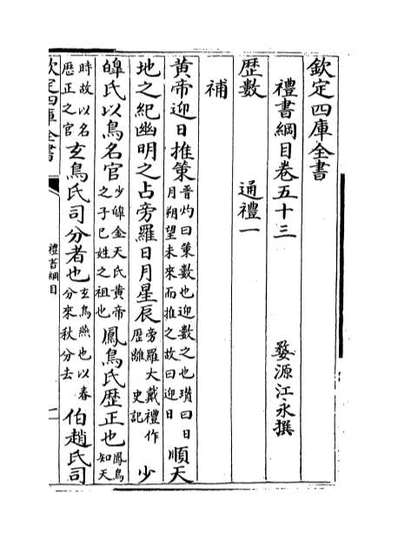 欽定四庫全書
禮書綱目卷五十三 婺源江永撰
歴數 通禮一
補
黄帝迎日推策晋灼曰策數也迎數之也瓉曰日月朔望未來而推之故曰迎日順天
地之紀幽明之占旁羅日月星辰旁羅大戴禮作歴離 史記少
皥氏以鳥名官少皥金天氏黄帝之子已姓之祖也鳳鳥氏歴正也鳳鳥知天
時故以名歴正之官玄鳥氏司分者也玄鳥燕也以春分來秋分去伯趙氏司
欽定四庫全書
禮書綱目
一